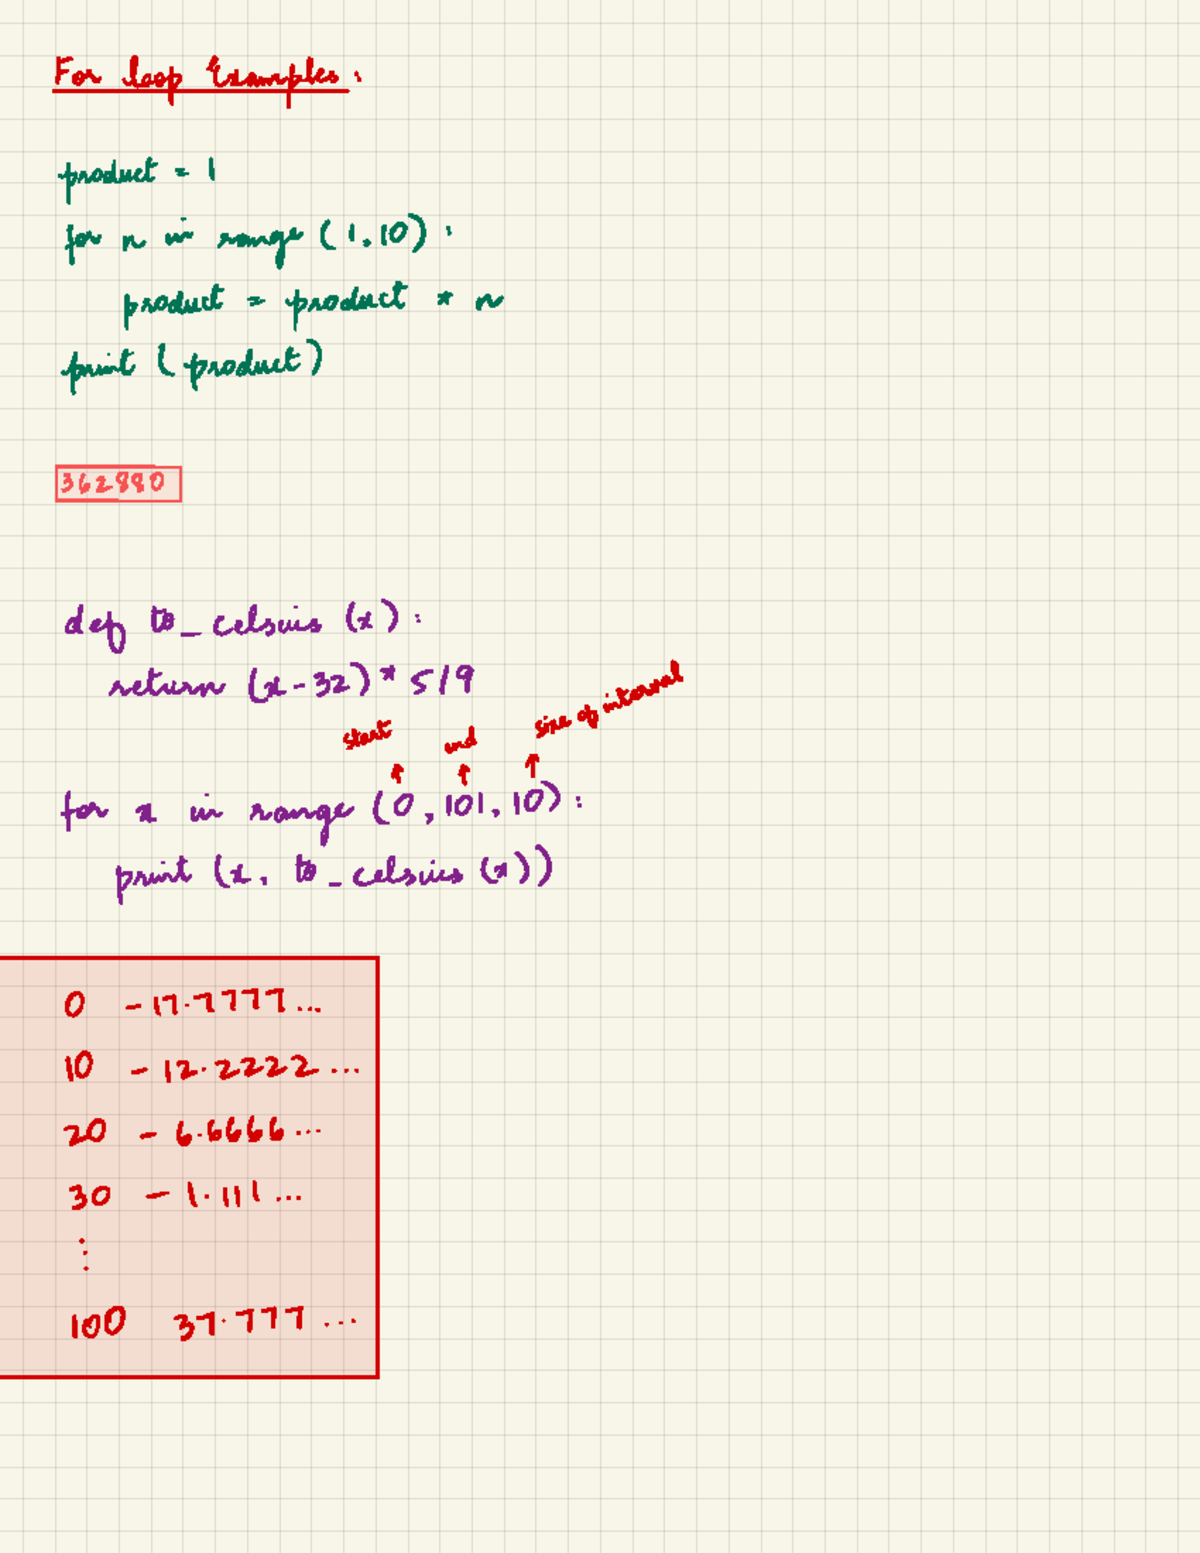 For loop Examples:
product = 1
for n in range (1,10) :
product = product * n
print (product)
362880
def to_celsuis (x) :
return (x-32) * 5/9
start end size of interval
↑ ↑ ↑
for x in range (0, 101, 10) :
print (x, to_celsuis (x))
0 -17.7777...
10 -12.2222...
20 -6.6666...
30 -1.111...
⋮
100 37.777...